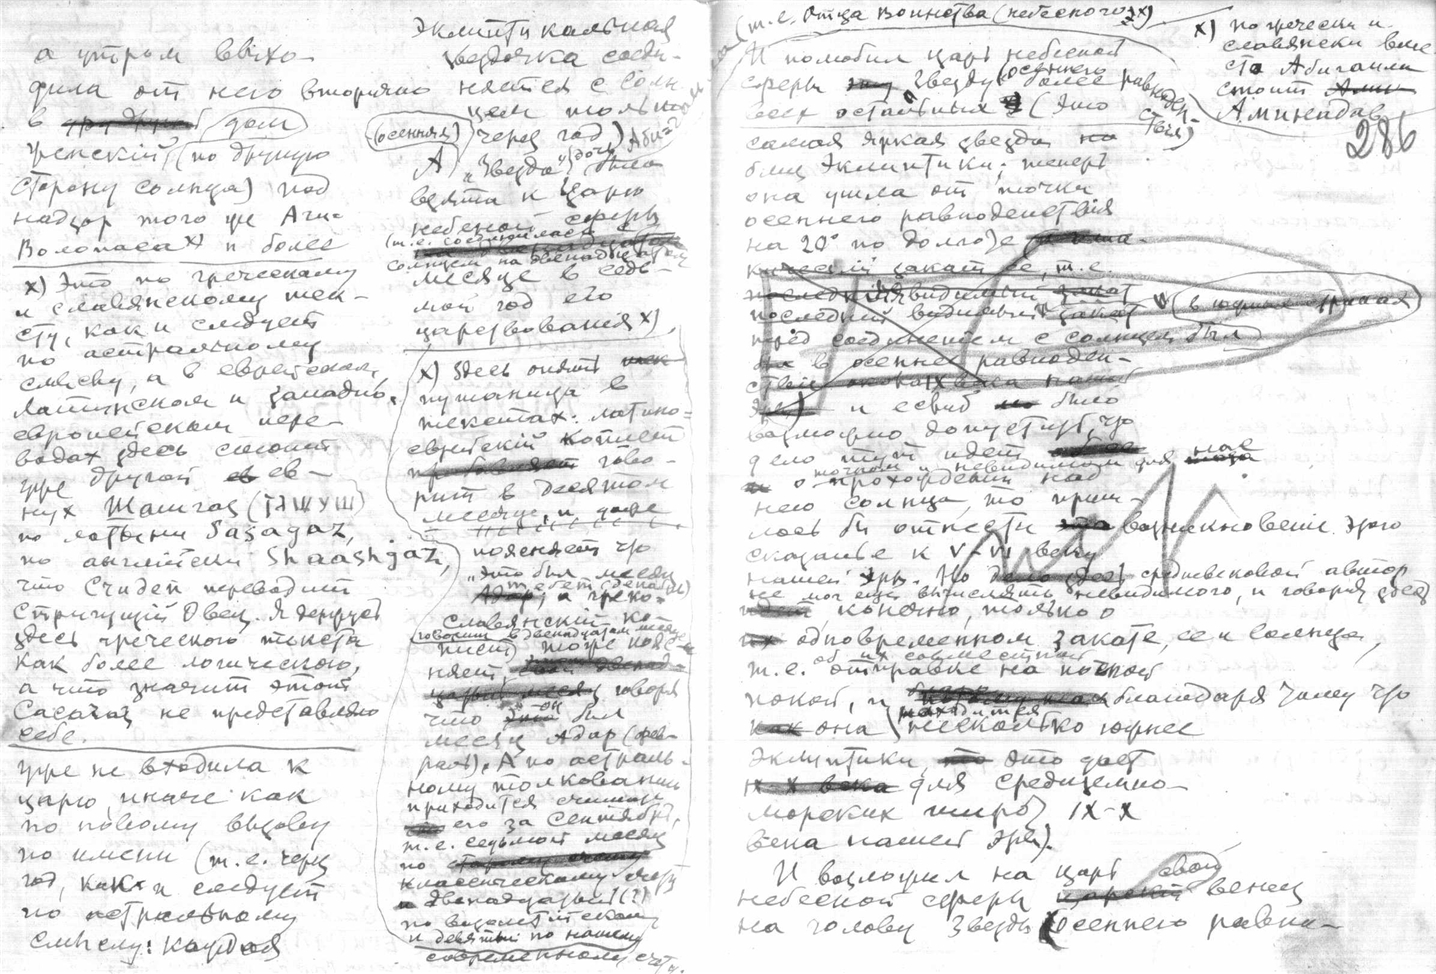 а утром выхо-
дила от него вторично
в дом
женский (по другую
сторону солнца) под
надзор того же Аги-
Волопаса х) и более
х) Это по греческому
и славянскому тек-
сту, как и следует
по астральному
смыслу, а в еврейском,
латинском и западно-
европейском пере-
водах здесь стоит
уже другой ев-
нух Шашгаз (
по латыни Sagagaz,
по английски Shaashgaz,
что Синден переводит
Стригущий Овец. Я держусь
здесь греческого текста
как более логического,
а что значит этот
Сасагаз не представляю
себе.
уже не входила к
царю, иначе как
по новому вызову
по имени (т.е. через
год, как и следует
по астральному
смыслу: каждая
эклиптикальная
звездочка соеди-
няется с Солн-
цем только
через год)
(осенняя)
А "Звезда" (дочь Аби-
была
взята к Царю
небесной сферы
(т.е. соединилась с
солнцем на двенадцатом
месяце в седь-
мой год его
царствования х)
х) Здесь опять
путаница в
текстах: латино-
еврейский контекст
гово-
рит в десятом
месяце, и даже
поясняет что
"это был месяц
Тебет (декабрь)
а греко-
славянский кон-
(говорит в двенадцатом месяце
текст) тоже пояс-
няет, говоря
что он был
месяц Адар (фев-
раль). А по астраль-
ному толкованию
приходится считать
его за Сентябрь,
т.е. седьмой месяц
по
классическому счету
двенадцатый (?)
по византийскому
и девятый по нашему
современному счету.
(т.е. Отца Воинства (небесного) х)
х) по гречески и
славянски вме-
сто Абигаила
стоит
Аминадав
286
И полюбил царь небесной
сферы Звезду осеннего равноден-
ствия
более
всех остальных (Это
самая яркая звезда на
близ Эклиптики; теперь
она ушла от точки
осеннего равноденствия
на 20° по долготе
закат ее, т.е.
последний видимый закат (в южных странах)
перед соединением с солнцем был
в осеннее равноден-
ствие
и если б было
возможно допустить, что
дело тут идет
о точном и невидимом для нас
прохождении над
него солнца, то приш-
лось бы отнести возникновение этого
сказанье к V-VI веку
нашей эры. Но средневековой автор
не мог еще вычислять невидимого, и говорил здесь
конечно, только о
одновременном закате ее и Солнца,
т.е. об их совместной
отправке на ночной
покой, и благодаря тому что
она находится несколько южнее
эклиптики, это дает
для средиземно-
морских широт IX-X
века нашей эры).
И возложил на царь
небесной сферы свой венец
на голову Звезды Осеннего равно-